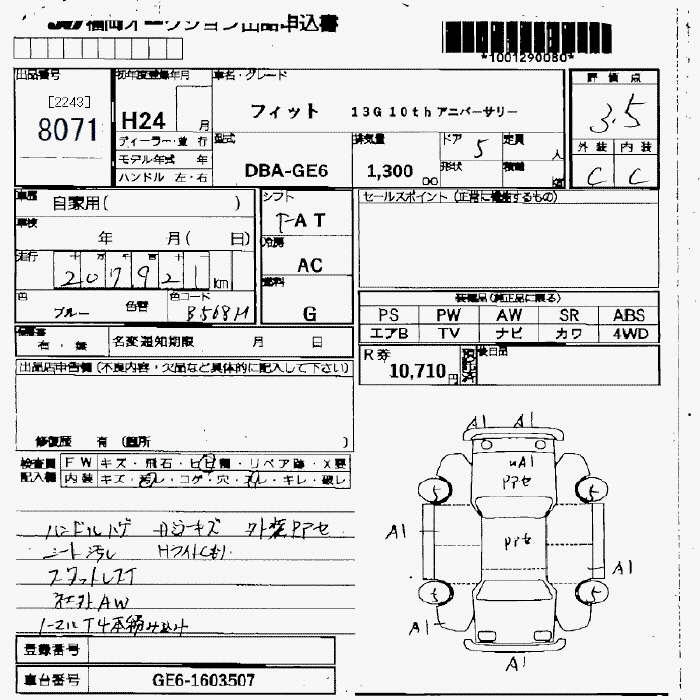 福岡オークション出品申込書
*1001290080*
出品番号
[2243]
8071
初年度登録年月
H24 月
ディーラー・並行
モデル年式 年
ハンドル 左・右
車名・グレード
フィット 13G 10thアニバーサリー
型式
DBA-GE6
排気量
1,300
ドア 5
形状
定員 人
積載
評価点
3.5
外装 内装
C C
車歴
自家用( )
車検
年 月( 日)
走行
207921km
色
ブルー 色替
色コード
B568M
シフト
FAT
冷房
AC
燃料
G
セールスポイント(正常に機能するもの)
装備品(純正品に限る)
PS PW AW SR ABS
エアB TV ナビ カワ 4WD
有・無
名変通知期限 月 日
R券
10,710円
後日品
出品店申告欄(不良内容・欠品など具体的に記入して下さい)
修復歴 有(箇所 )
検査員記入欄
FW キズ・飛石・ヒビ・リペア跡・X要
内装 キズ・汚レ・コゲ・穴・スレ・キレ・破レ
ハンドルハゲ ガラーキズ 外装PPセ
シート汚れ Hライトくもり
スタットレスT
社外AW
ノーマルT4本積み込み
登録番号
車台番号 GE6-1603507
A1 A1
uA1
PPセ
5 5
A1
PPセ
A1
5 5
A1
A1